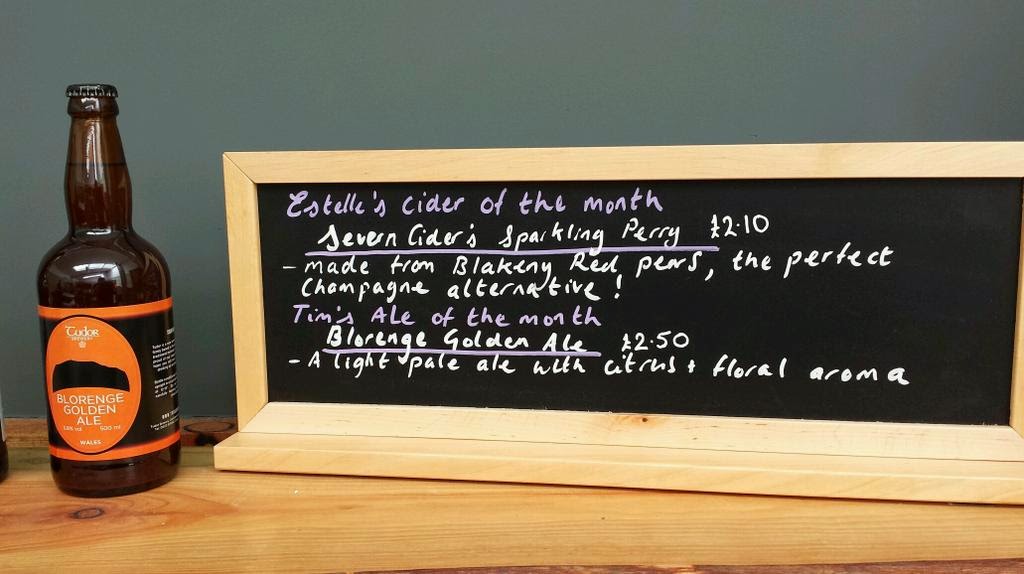 Estelle's Cider of the month
Severn Cider's Sparkling Perry £2.10
- made from Blakeny Red pears, the perfect
Champagne alternative!
Tim's Ale of the month
Blorenge Golden Ale £2.50
- A light pale ale with citrus + floral aroma
Tudor
BREWERY
BLORENGE
GOLDEN
ALE
3.8% vol 500 ml
WALES